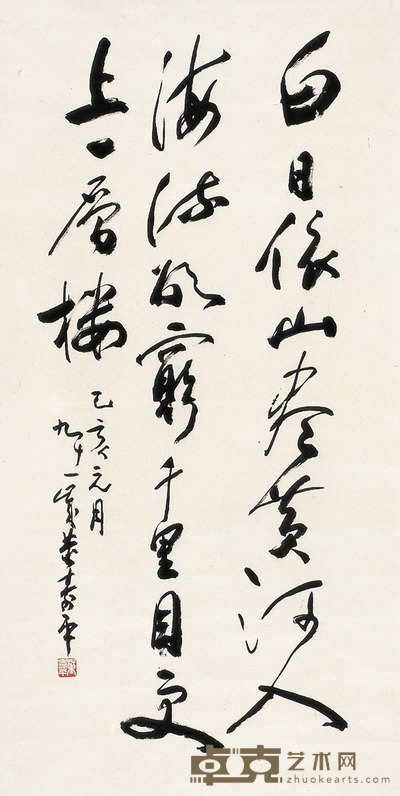 白日依山尽黄河入
海流欲穷千里目更
上一层楼
乙亥元月
九十一岁董寿平
卓克艺术网
zhuokearts.com